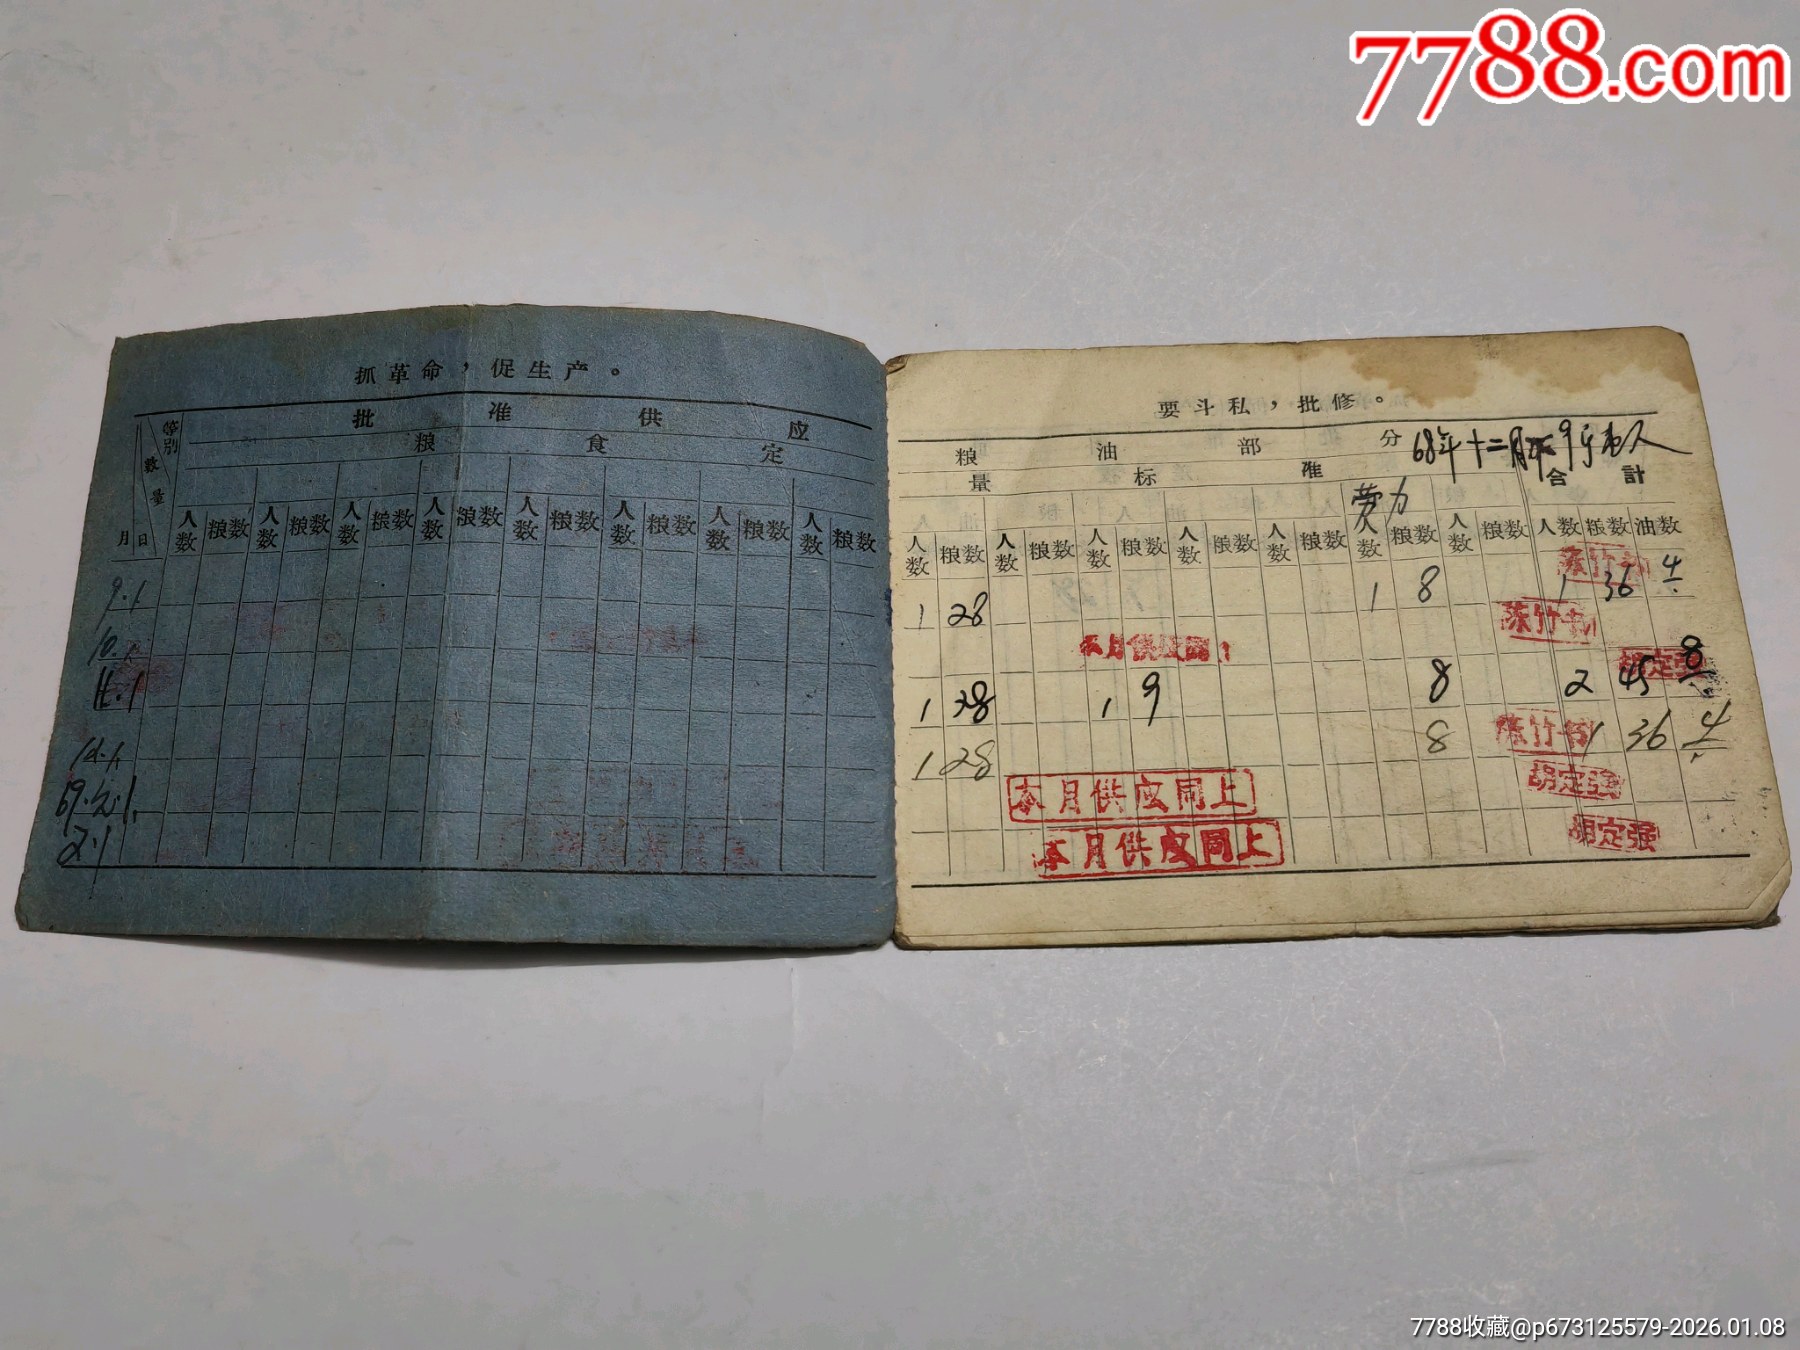 7788.com
抓革命，促生产。
批准供应
粮食定
等别
数量
月日
人数 粮数 人数 粮数 人数 粮数 人数 粮数 人数 粮数 人数 粮数 人数 粮数 人数 粮数
9.1
10.1
11.1
12.1
69.元.1.
2.1
要斗私，批修。
粮油部分
68年十二月
量标准
合計
劳力
人数 粮数 人数 粮数 人数 粮数 人数 粮数 人数 粮数 人数 粮数 人数 粮数 人数 粮数 油数
1 28 1 8 1 36 4
本月供应同上
1 28 1 9 8 2 45 8
胡定强
1 28 8 1 36 4
本月供应同上 胡定强
本月供应同上 胡定强
7788收藏@p673125579-2026.01.08